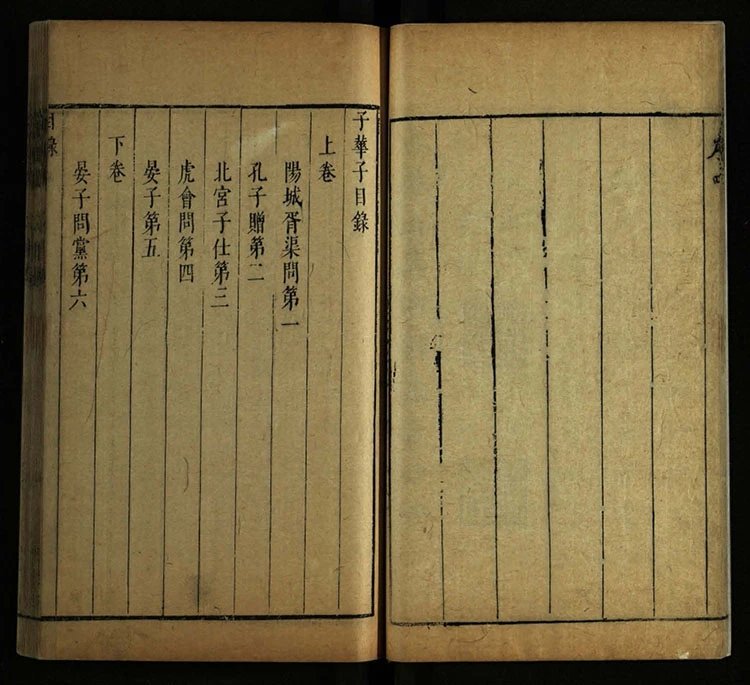 子華子目錄
上卷
陽城胥渠問第一
孔子贈第二
北宮子仕第三
虎會問第四
晏子第五
下卷
晏子問黨第六
目錄